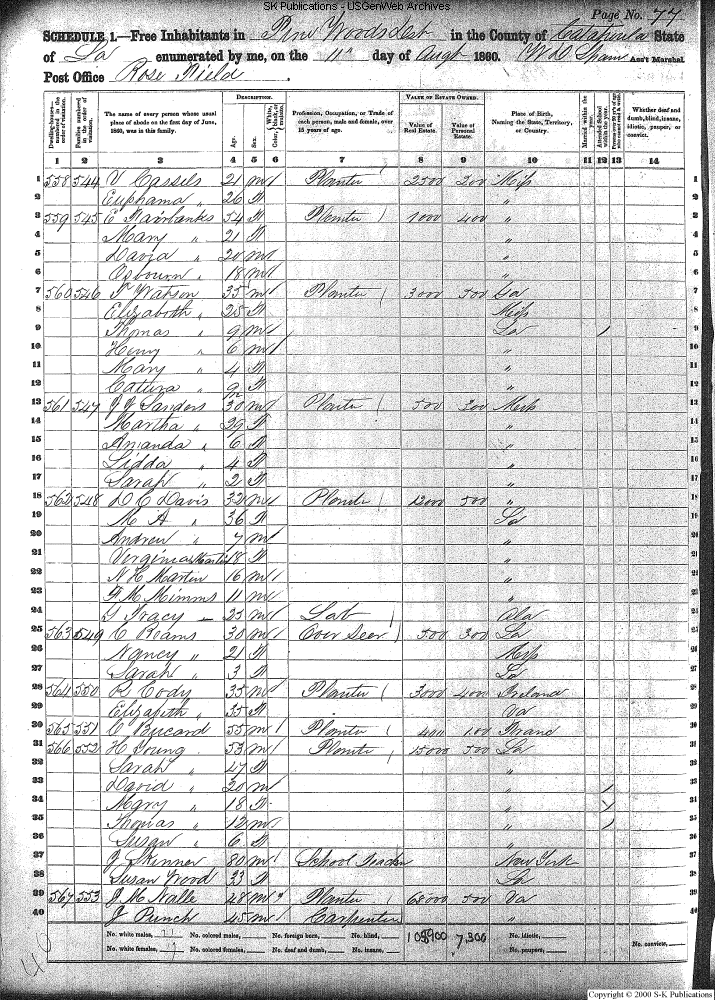 SK Publications - USGenWeb Archives
Page No. 77
SCHEDULE 1.—Free Inhabitants in Pine Woods Dist in the County of Catahoula State
of La enumerated by me, on the 11th day of Augt 1860. W D Spann Ass't Marshal.
Post Office Rose Field
Dwelling-houses—numbered in the order of visitation.
Families numbered in the order of visitation.
The name of every person whose usual place of abode on the first day of June, 1860, was in this family.
DESCRIPTION.
Age.
Sex.
Color, White, black, or mulatto.
Profession, Occupation, or Trade of each person, male and female, over 15 years of age.
VALUE OF ESTATE OWNED.
Value of Real Estate.
Value of Personal Estate.
Place of Birth, Naming the State, Territory, or Country.
Married within the year.
Attended School within the year.
Persons over 20 y'rs of age who cannot read & write.
Whether deaf and dumb, blind, insane, idiotic, pauper, or convict.
1 2 3 4 5 6 7 8 9 10 11 12 13 14
1 558 544 V Cassels 21 m / Planter / 2500 200 Miss 1
2 Euphama " 26 f " 2
3 559 545 E Fairbanks 54 f Planter / 1000 400 " 3
4 Mary " 21 f " 4
5 David " 20 m " 5
6 Osbourn " 18 m " 6
7 560 546 Watson 35 m / Planter / 3000 500 Ga 7
8 Elizabeth " 25 f Miss 8
9 Thomas " 9 m La / 9
10 Henry " 6 m " 10
11 Mary " 4 f " 11
12 " 9/12 f " 12
13 561 547 J J Sanders 30 m / Planter / 500 300 Miss 13
14 Martha " 29 f " 14
15 Amanda " 6 f " 15
16 Lidda " 4 f " 16
17 Sarah " 2 f " 17
18 562 548 D C Davis 32 m / Planter / 1200 500 " 18
19 M A " 36 f La 19
20 Andrew " 7 m " 20
21 Virginia Martin 18 f " 21
22 N H Martin 16 m " 22
23 F M Mimms 11 m " 23
24 Tracy 25 m / Lab / Ala 24
25 563 549 C Roams 30 m / Over Seer / 500 300 La 25
26 Nancy " 21 f Miss 26
27 Sarah " 3 f La 27
28 564 550 R Cody 35 m / Planter / 3000 400 Ireland 28
29 Elizabeth " 35 f Va 29
30 565 551 C Bucard 55 m / Planter / 400 100 France 30
31 566 552 H Young 53 m / Planter / 15000 500 La 31
32 Sarah " 47 f " 32
33 David " 20 m " / 33
34 Mary " 18 f " / 34
35 Thomas " 12 m " / 35
36 Susan " 6 f " 36
37 J Skinner 80 m / School Teacher New York 37
38 Susan Wood 33 f La 38
39 567 553 J M Nalle 48 m / Planter / 68000 500 Va 39
40 J Punch 45 m / Carpenter " 40
No. white males, No. colored males, No. foreign born, No. blind, 108900 7,300 No. idiotic, No. convicts,
No. white females, No. colored females, No. deaf and dumb, No. insane, No. paupers,
Copyright © 2000 S-K Publications